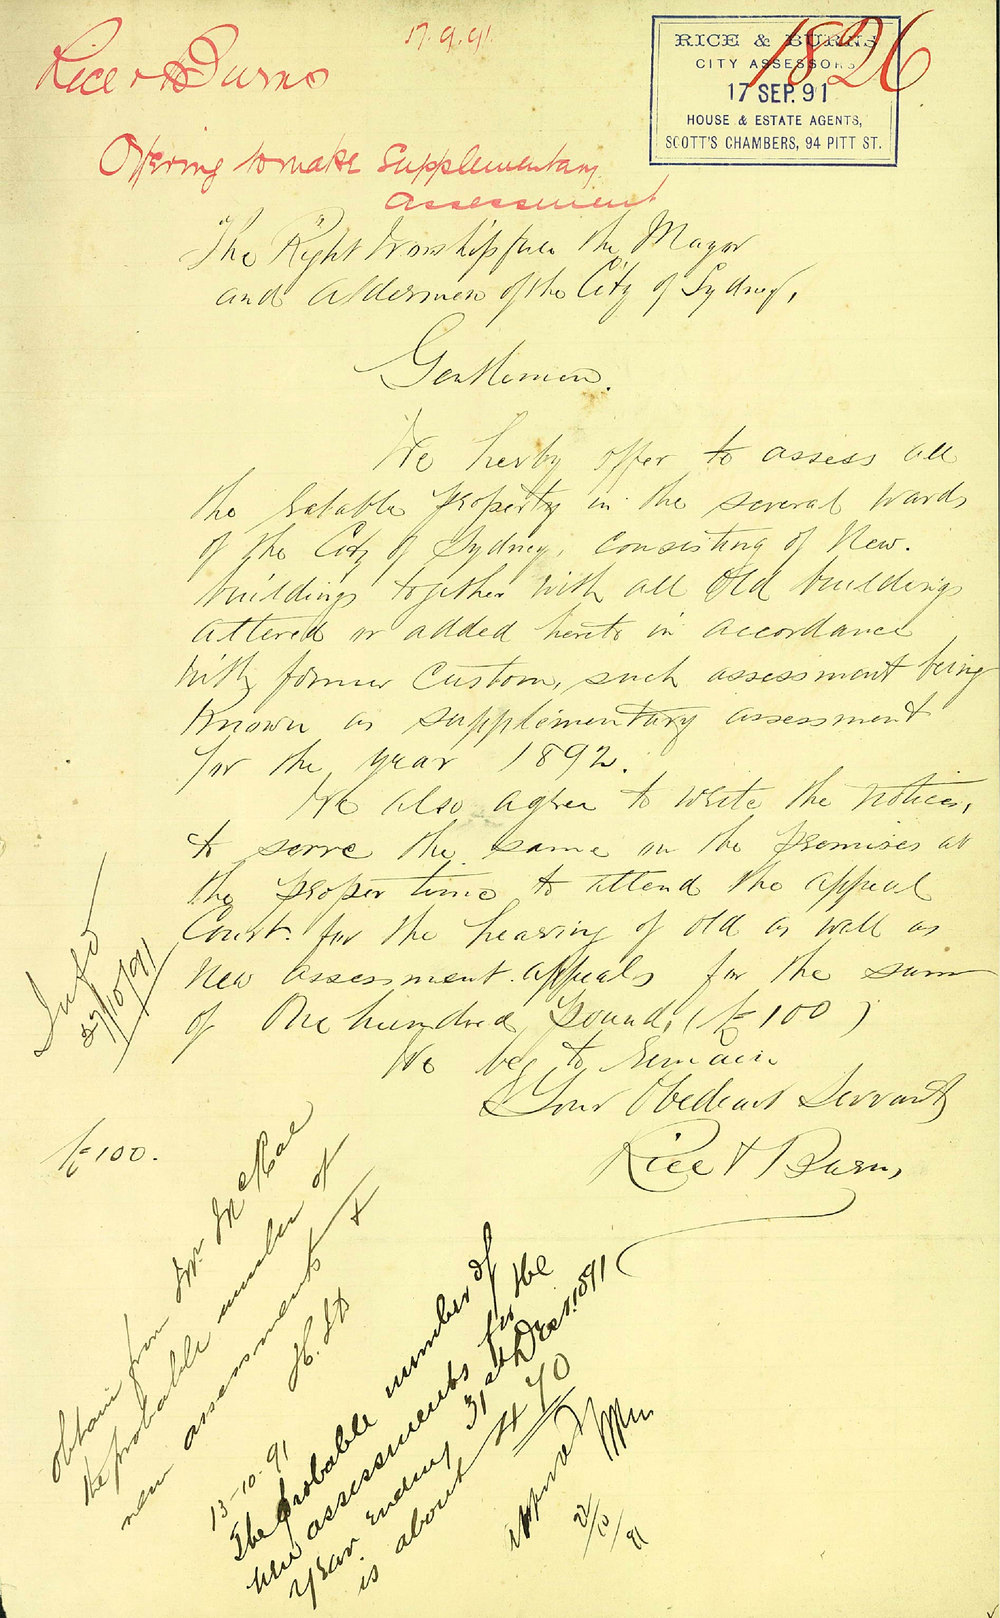 17.9.91
Rice & Burns
1826
RICE & BURNS
CITY ASSESSORS
17 SEP. 91
HOUSE & ESTATE AGENTS,
SCOTT'S CHAMBERS, 94 PITT ST.
Offering to make Supplementary
assessment
"The Right" Worshipfull the Mayor
and Aldermen of the City of Sydney,
Gentlemen.
We herby offer to assess all
the Ratable property in the several wards
of the City of Sydney, consisting of New.
buildings together with all Old buildings
altered or added hereto in accordance
with former Custom, such assessment being
known as supplementary assessment
for the year 1892.
We also agree to write the notices,
to serve the same on the premises at
the proper time to attend the appeal
Court. for the hearing of old as well as
New assessment. appeals for the sum
of One hundred pounds (£100)
We beg to Remain
Your Obedient Servants
Rice & Burns
£100.
27/10/91
obtain from Mr McRae
the probable number of
new assessments
13-10-91
The probable number of
new assessments for the
year ending 31st Decr. 1891
is about 470
22/10/91